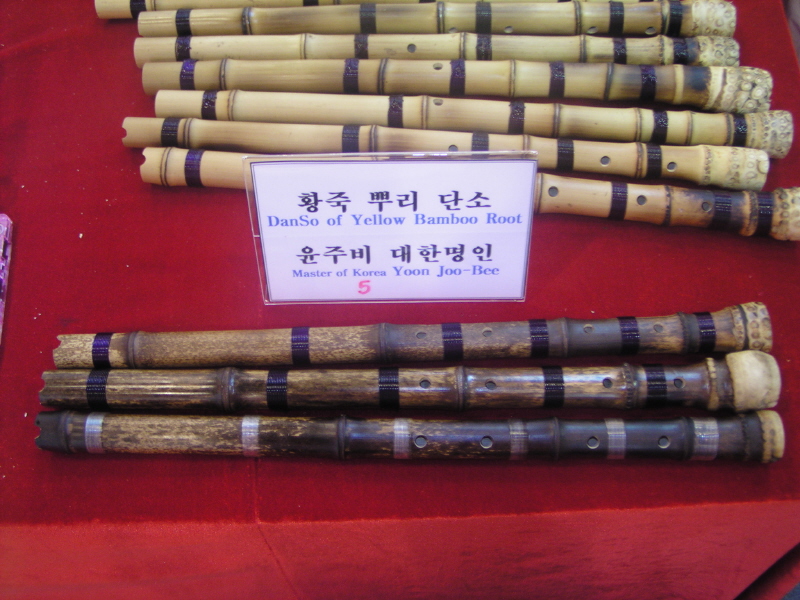 황죽 뿌리 단소
DanSo of Yellow Bamboo Root
윤주비 대한명인
Master of Korea Yoon Joo-Bee
5